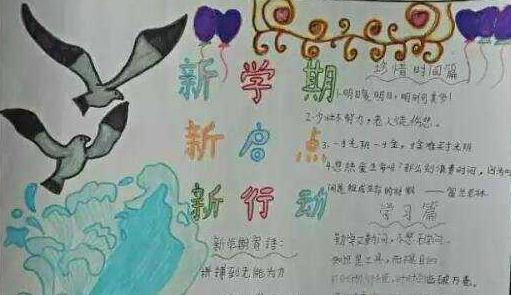 新学期
新启点
新行动
珍惜时间篇
1.明日复明日，明日何其多！
2.少壮不努力，老大徒伤悲。
3.一寸光阴一寸金，寸金难买寸光阴
4.你热爱生命吗？那么别浪费时间，因为时
间是组成生命的材料 ——富兰克林
学习篇
新学期寄语：
拼搏到无能为力